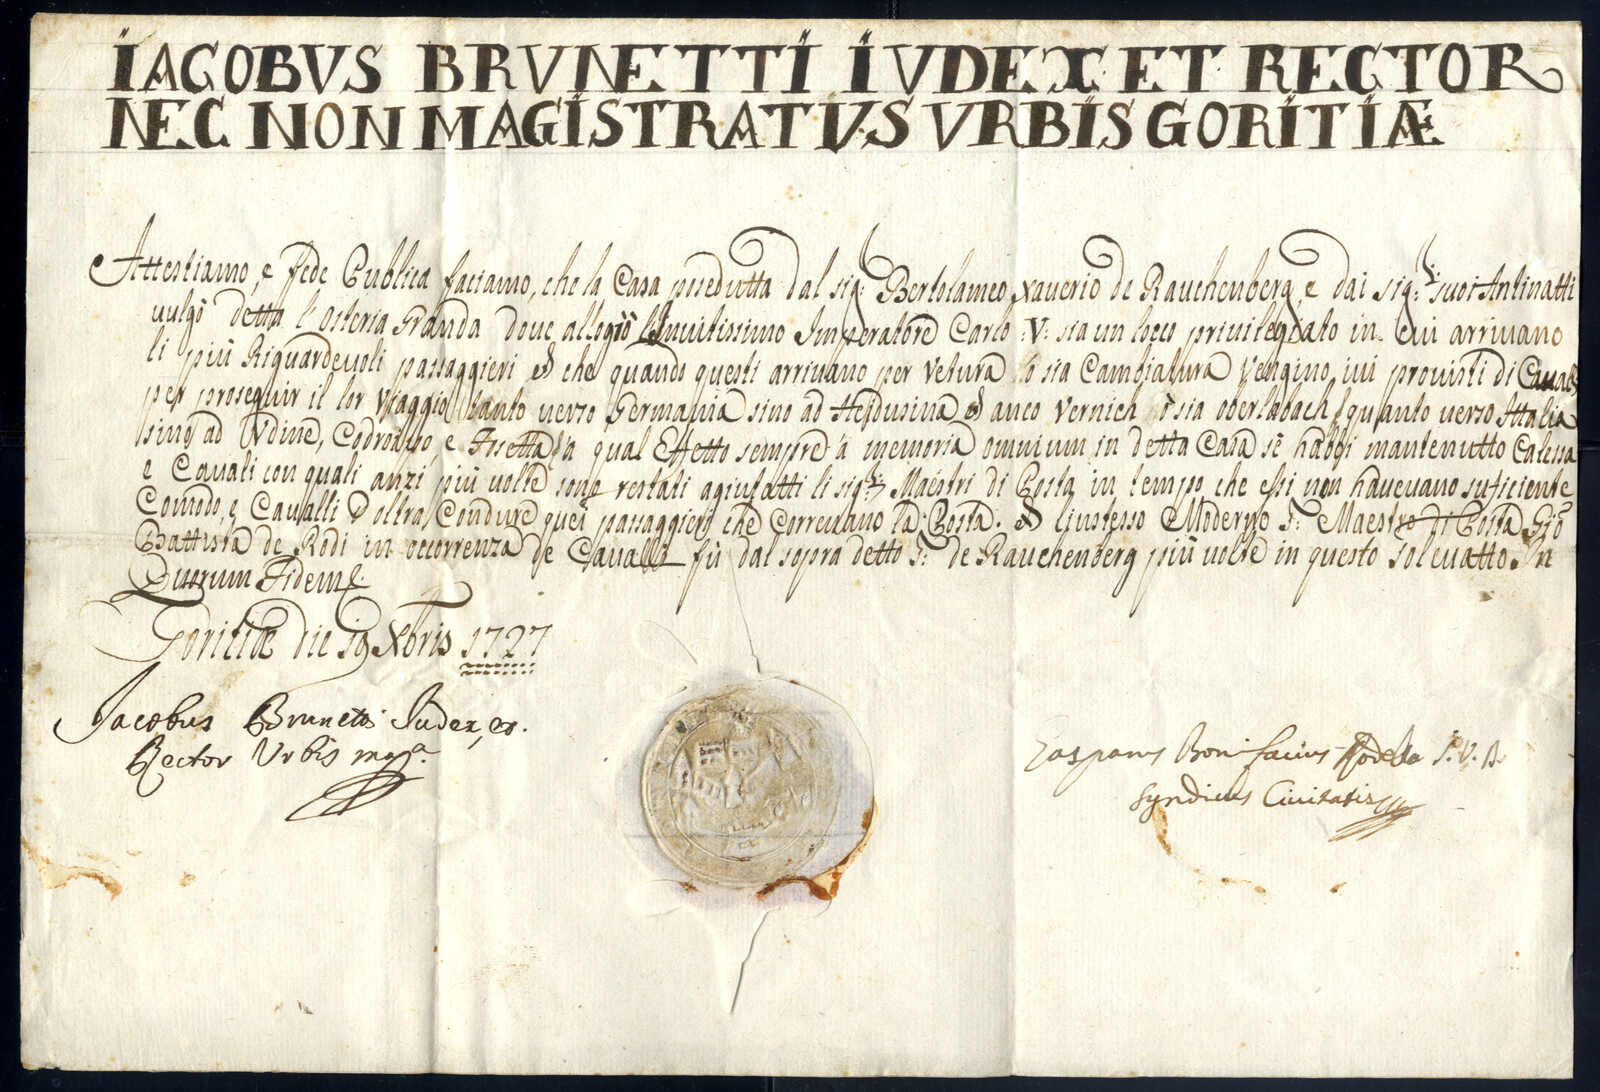 IACOBVS BRVNETTI IVDEX ET RECTOR
NEC NON MAGISTRATVS VRBIS GORITIÆ
Attestiamo, e fede Publica faciamo, che la Casa posedutta dal sig.r Bertolameo Xaverio de Rauchenberg, e dai sig.ri suoi Antinatti
vulgò detta l'Osteria Granda doue allogiò l'Inuitissimo Imperatore Carlo :V: sia un loco priuilegiato in cui arriuano
li più Riguardeuoli passaggieri, & che quando questi arriuano per Vetura, ò sia Cambiatura Vengino iui prouisti di Caualli
per proseguir il lor Viaggio tanto uerso Germania sino ad Heidusina & anco Vernich ò sia oberlabach, quanto uerso Ittalia
sino ad Vdine, Codroipo, e Frsetta, à qual Effetto sempre à memoria omnium in detta Casa si habbi mantenutto Calessa
e Cauali con quali anzi più uolte sono restati agiutatti li sig.ri Maestri di Posta in tempo che essi non haueuano suficiente
Comodo, e Caualli d'oltra Condure quei passaggieri che correuano la Posta. & l'istesso Moderno S.r Maestro di Posta Gio:
Battista de Rodi in occorrenza de Caualli fù dal sopra detto S.r de Rauchenberg più uolte in questo soleuatto. In
Quorum Fidem
Goritiæ die 19 Xbris 1727
Jacobus Brunetti Judex, et
Rector Vrbis
Gasparus Bonifacius J.V.D.
Syndicus Ciuitatis